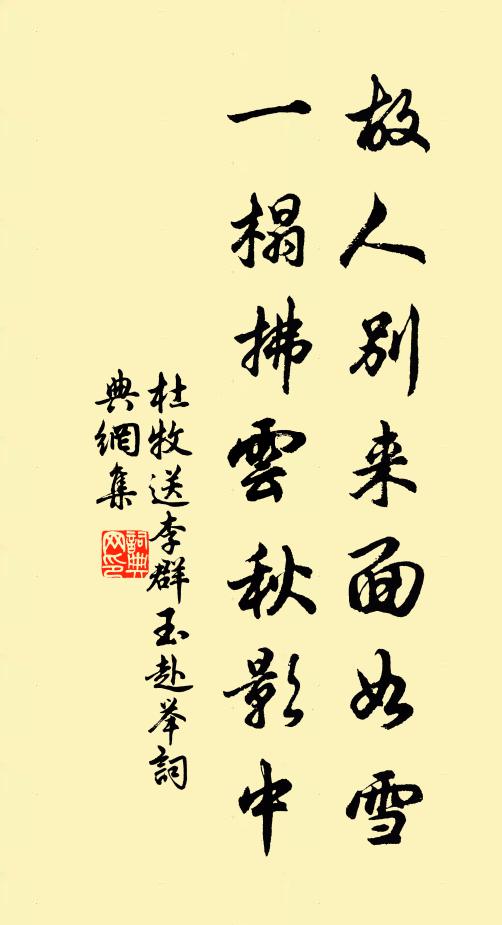 故人别来面如雪
一榻拂雲秋影中
杜牧送李群玉赴举詞
典網集
詞典
网印